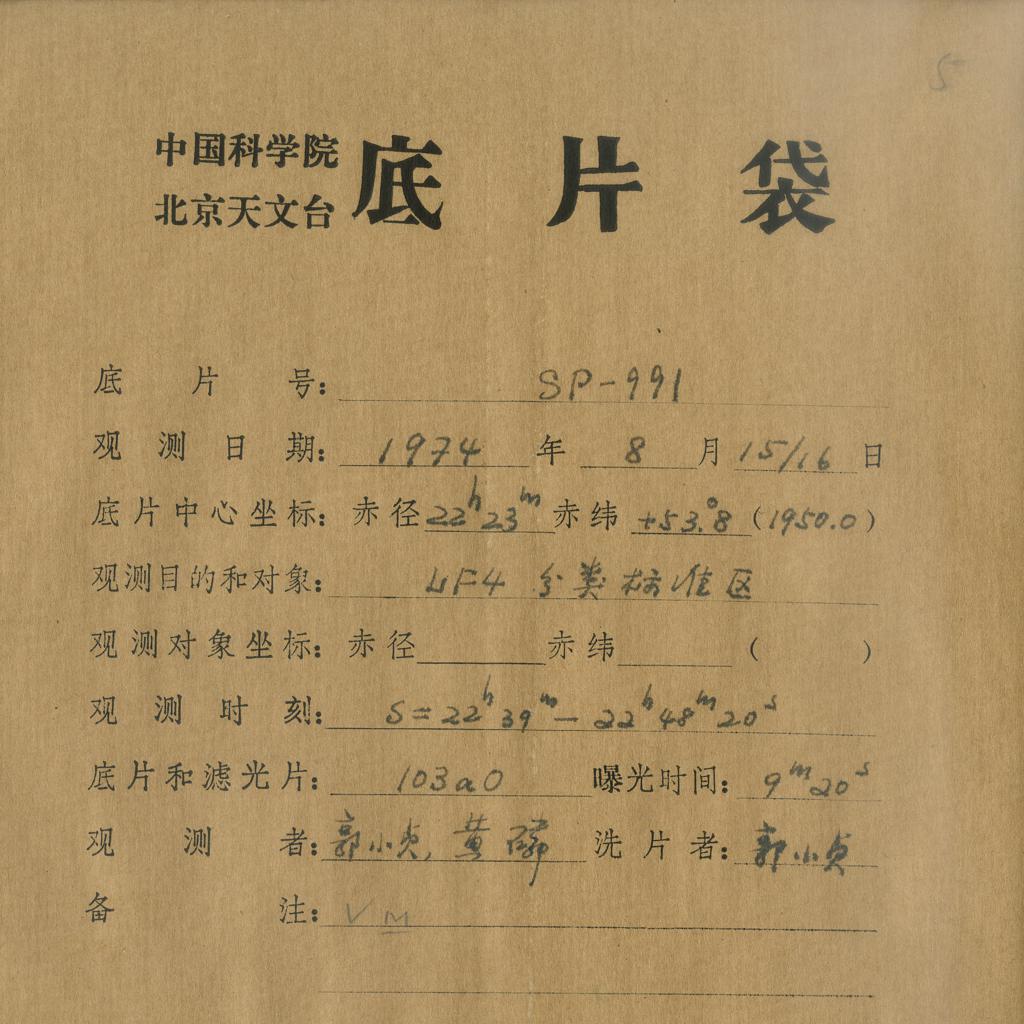 5
中国科学院
北京天文台 底片袋
底片号: SP-991
观测日期: 1974 年 8 月 15/16 日
底片中心坐标: 赤径 22ʰ23ᵐ 赤纬 +53.°8 (1950.0)
观测目的和对象: LF4 分类标准区
观测对象坐标: 赤径 赤纬 ( )
观测时刻: S=22ʰ39ᵐ-22ʰ48ᵐ20ˢ
底片和滤光片: 103aO 曝光时间: 9ᵐ20ˢ
观测者: 郭小贞, 黄 洗片者: 郭小贞
备注: VM